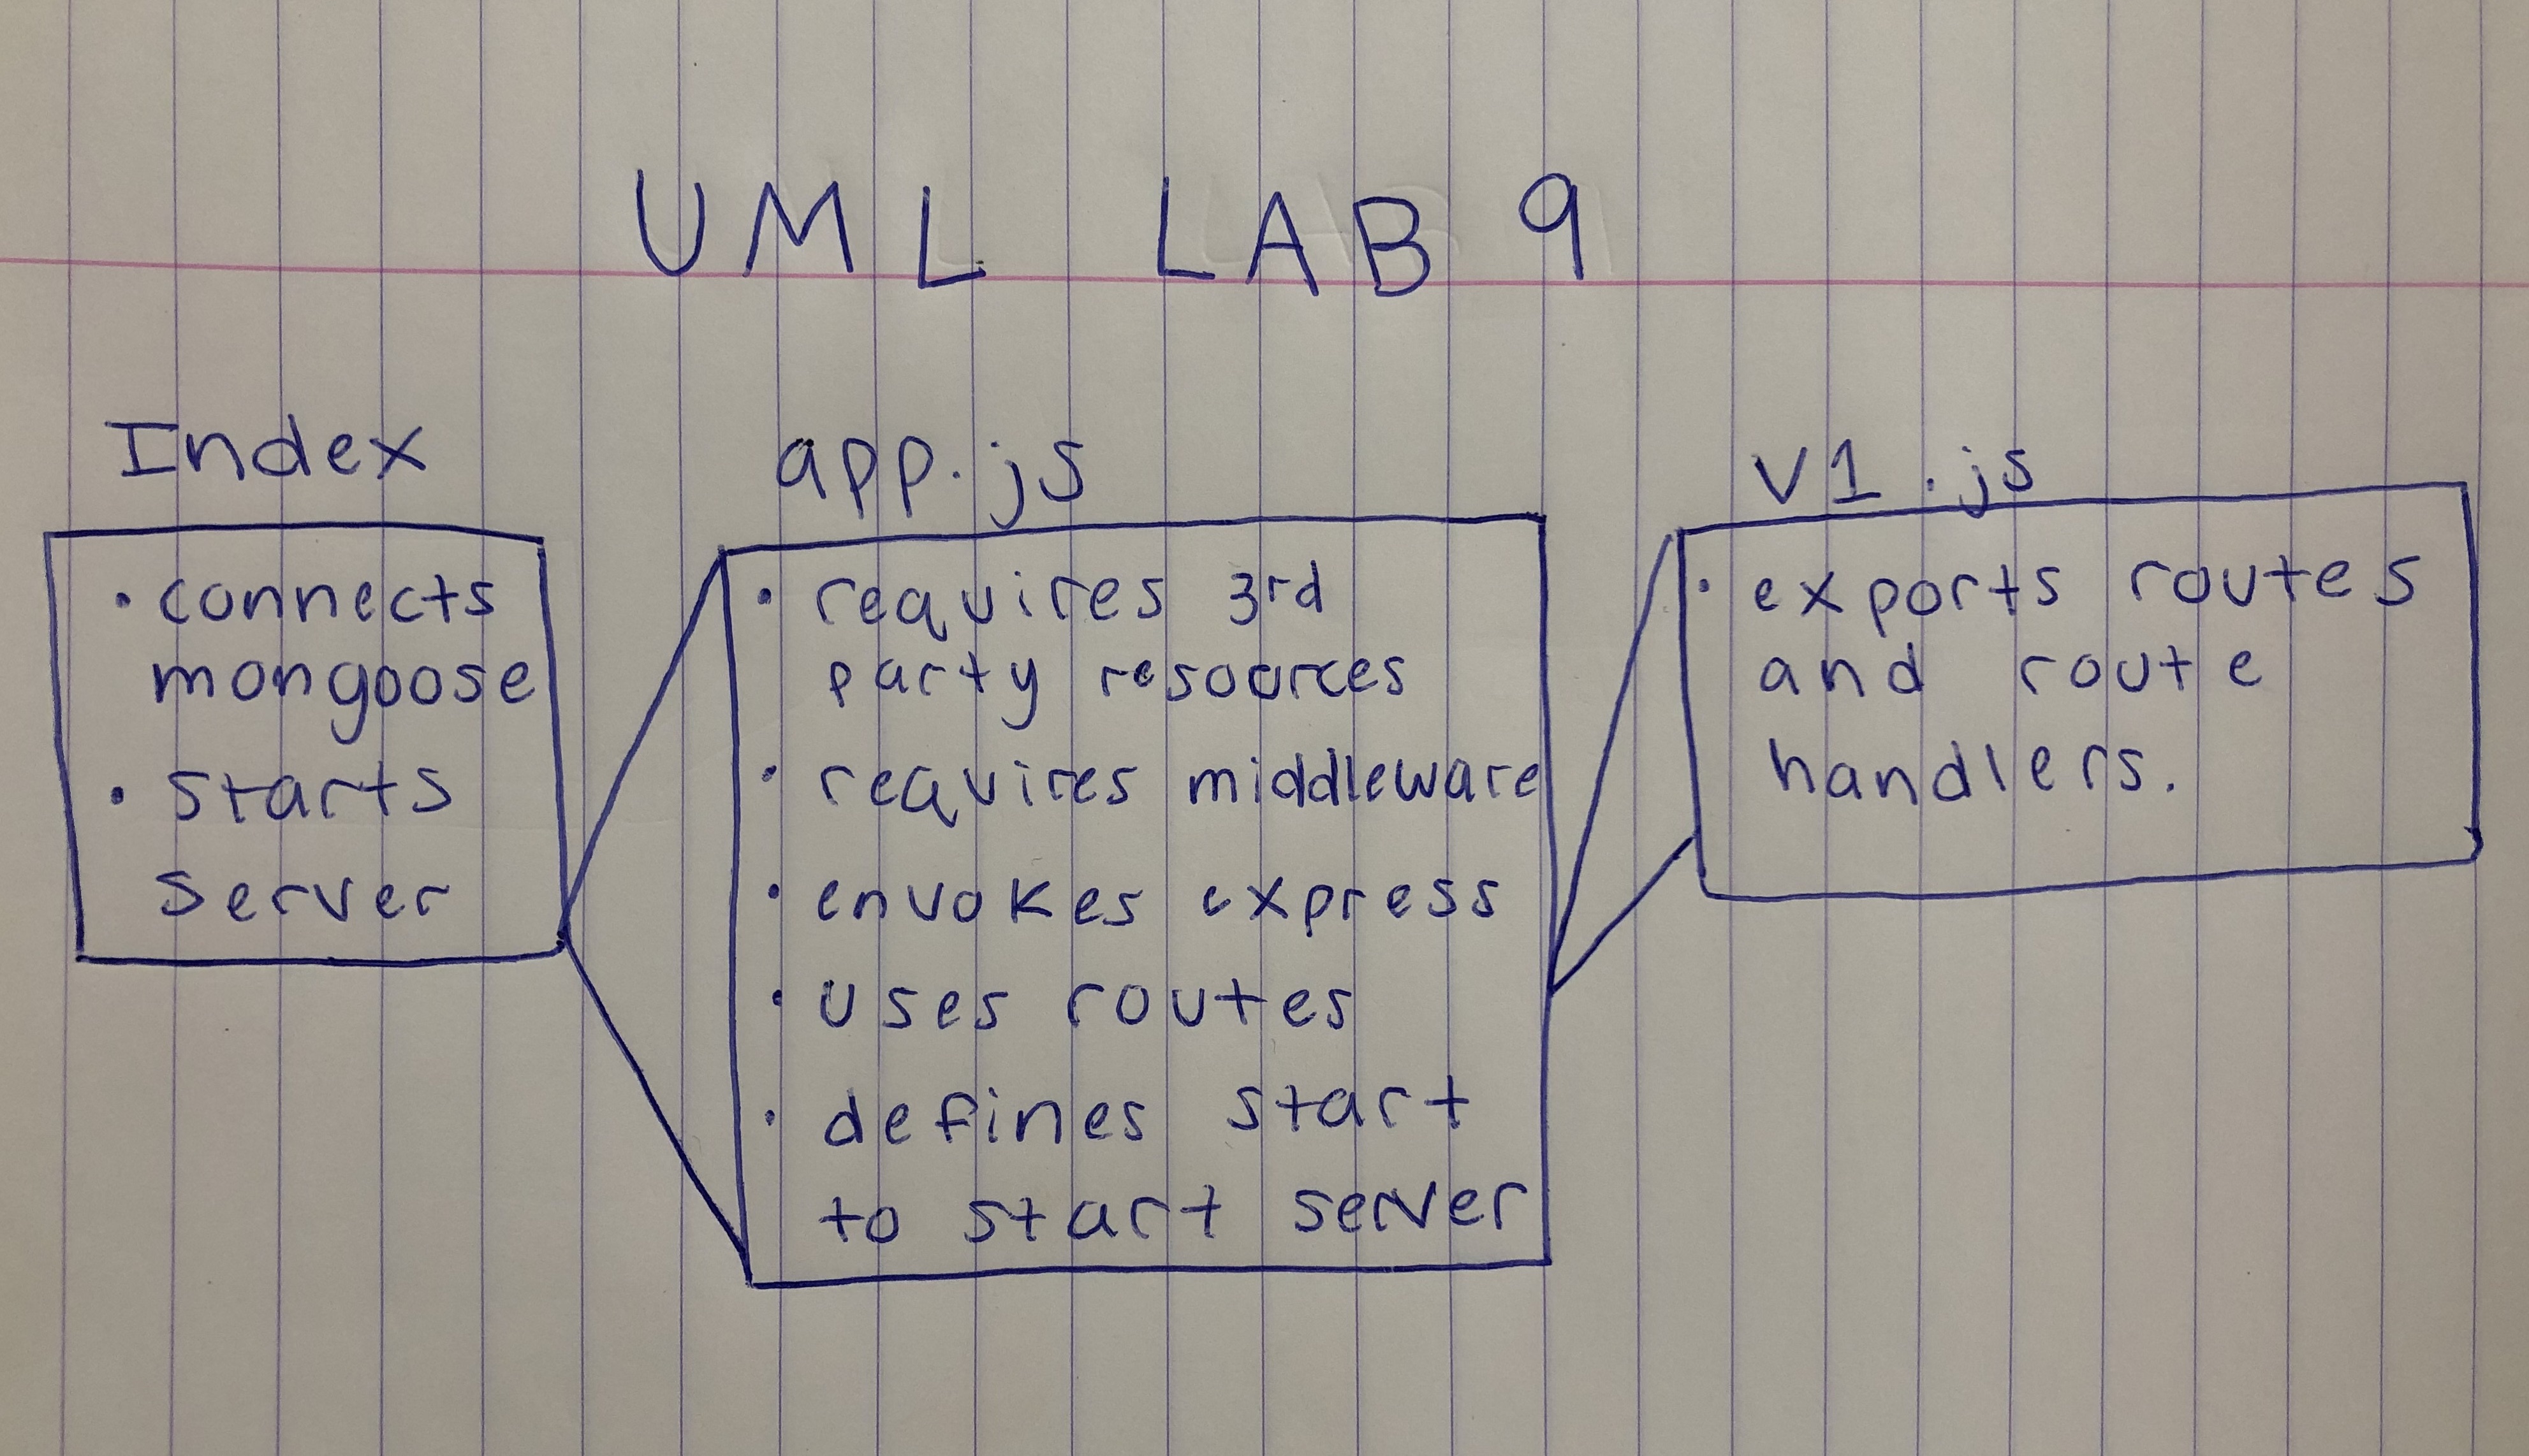 UML LAB 9
Index
• connects
mongoose
• starts
server
app.js
• requires 3rd
party resources
• requires middleware
• envokes express
• uses routes
• defines start
to start server
V1.js
• exports routes
and route
handlers.